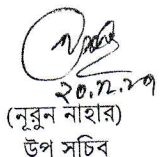 ২০.১২.২১
(নূরুন নাহার)
উপ সচিব